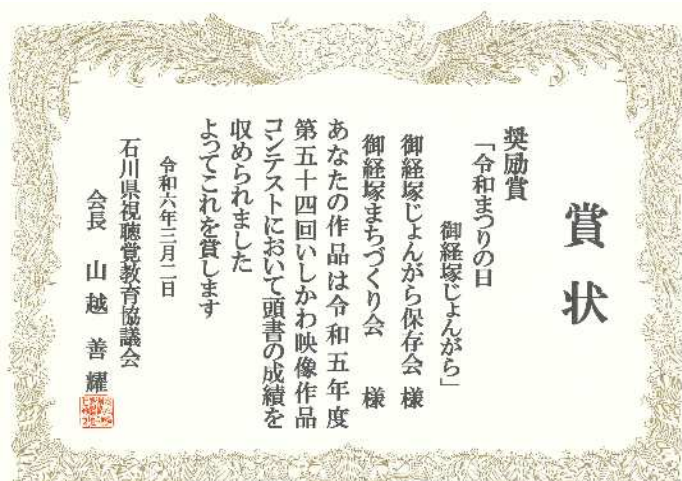 賞状
奨励賞
「令和まつりの日
御経塚じょんがら」
御経塚じょんがら保存会 様
御経塚まちづくり会 様
あなたの作品は令和五年度
第五十四回いしかわ映像作品
コンテストにおいて頭書の成績を
収められました
よってこれを賞します
令和六年三月二日
石川県視聴覚教育協議会
会長 山越善耀